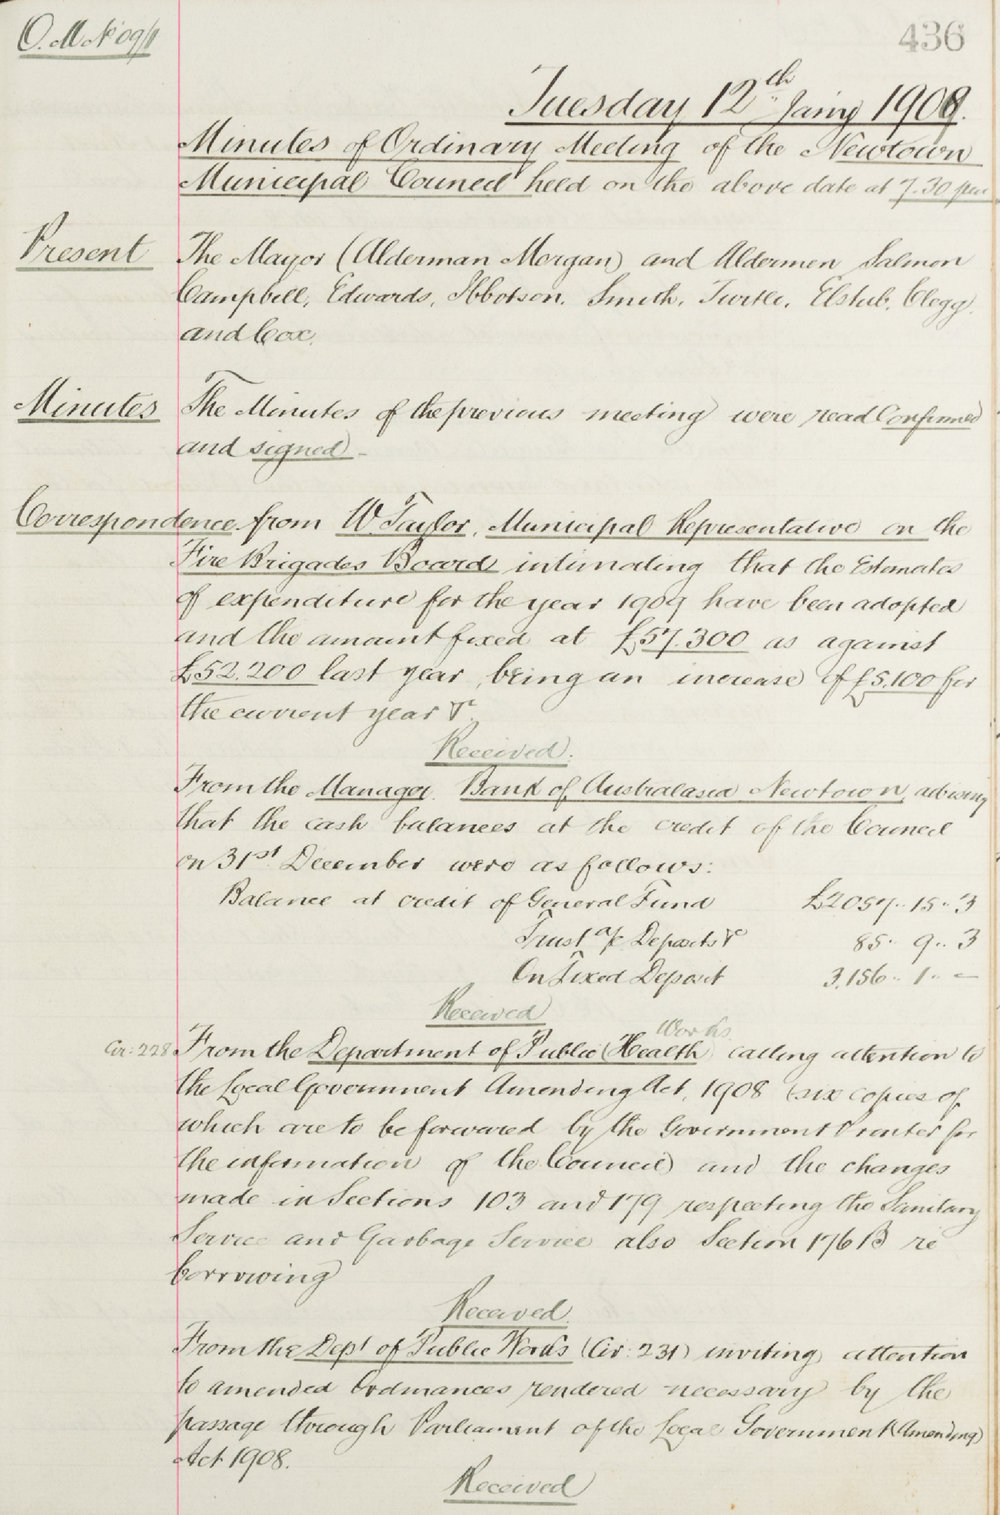 O. M. No 09/1
436
Tuesday 12th Jany 1909.
Minutes of Ordinary Meeting of the Newtown
Municipal Council held on the above date at 7.30 pm
Present The Mayor (Alderman Morgan) and Aldermen Salmon
Campbell, Edwards, Ibbotson, Smith, Turtle, Elstub, Clegg,
and Cox.
Minutes The Minutes of the previous meeting were read Confirmed
and signed -
Correspondence from W. Taylor, Municipal Representative on the
Fire Brigades Board intimating that the Estimates
of expenditure for the year 1909 have been adopted
and the amount fixed at £57.300 as against
£52.200 last year, being an increase of £5.100 for
the current year &c.
Received.
From the Manager Bank of Australasia Newtown, advising
that the cash balances at the credit of the Council
on 31st December were as follows:
Balance at credit of General Fund £2057.. 15.. 3
Trust a/c Deposits &c 85.. 9.. 3
On Fixed Deposit 3,156.. 1.. —
Received
Works
Cir: 228 From the Department of Public (Health) calling attention to
the Local Government Amending Act, 1908 (six copies of
which are to be forwarded by the Government Printer for
the information of the Council) and the changes
made in Sections 103 and 179 respecting the Sanitary
Service and Garbage Service also Section 176 B re
borrowing
Received
From the Dept of Public Works (Cir: 231) inviting attention
to amended Ordinances rendered necessary by the
passage through Parliament of the Local Government (Amending)
Act 1908.
Received